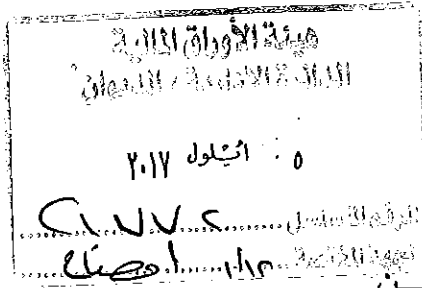 هيئة الأوراق المالية
الدائرة الادارية / الديوان
٥ ايلول ٢٠١٧
الرقم المتسلسل ٢١٧٧٢
الجهة المختصة ا فصاح